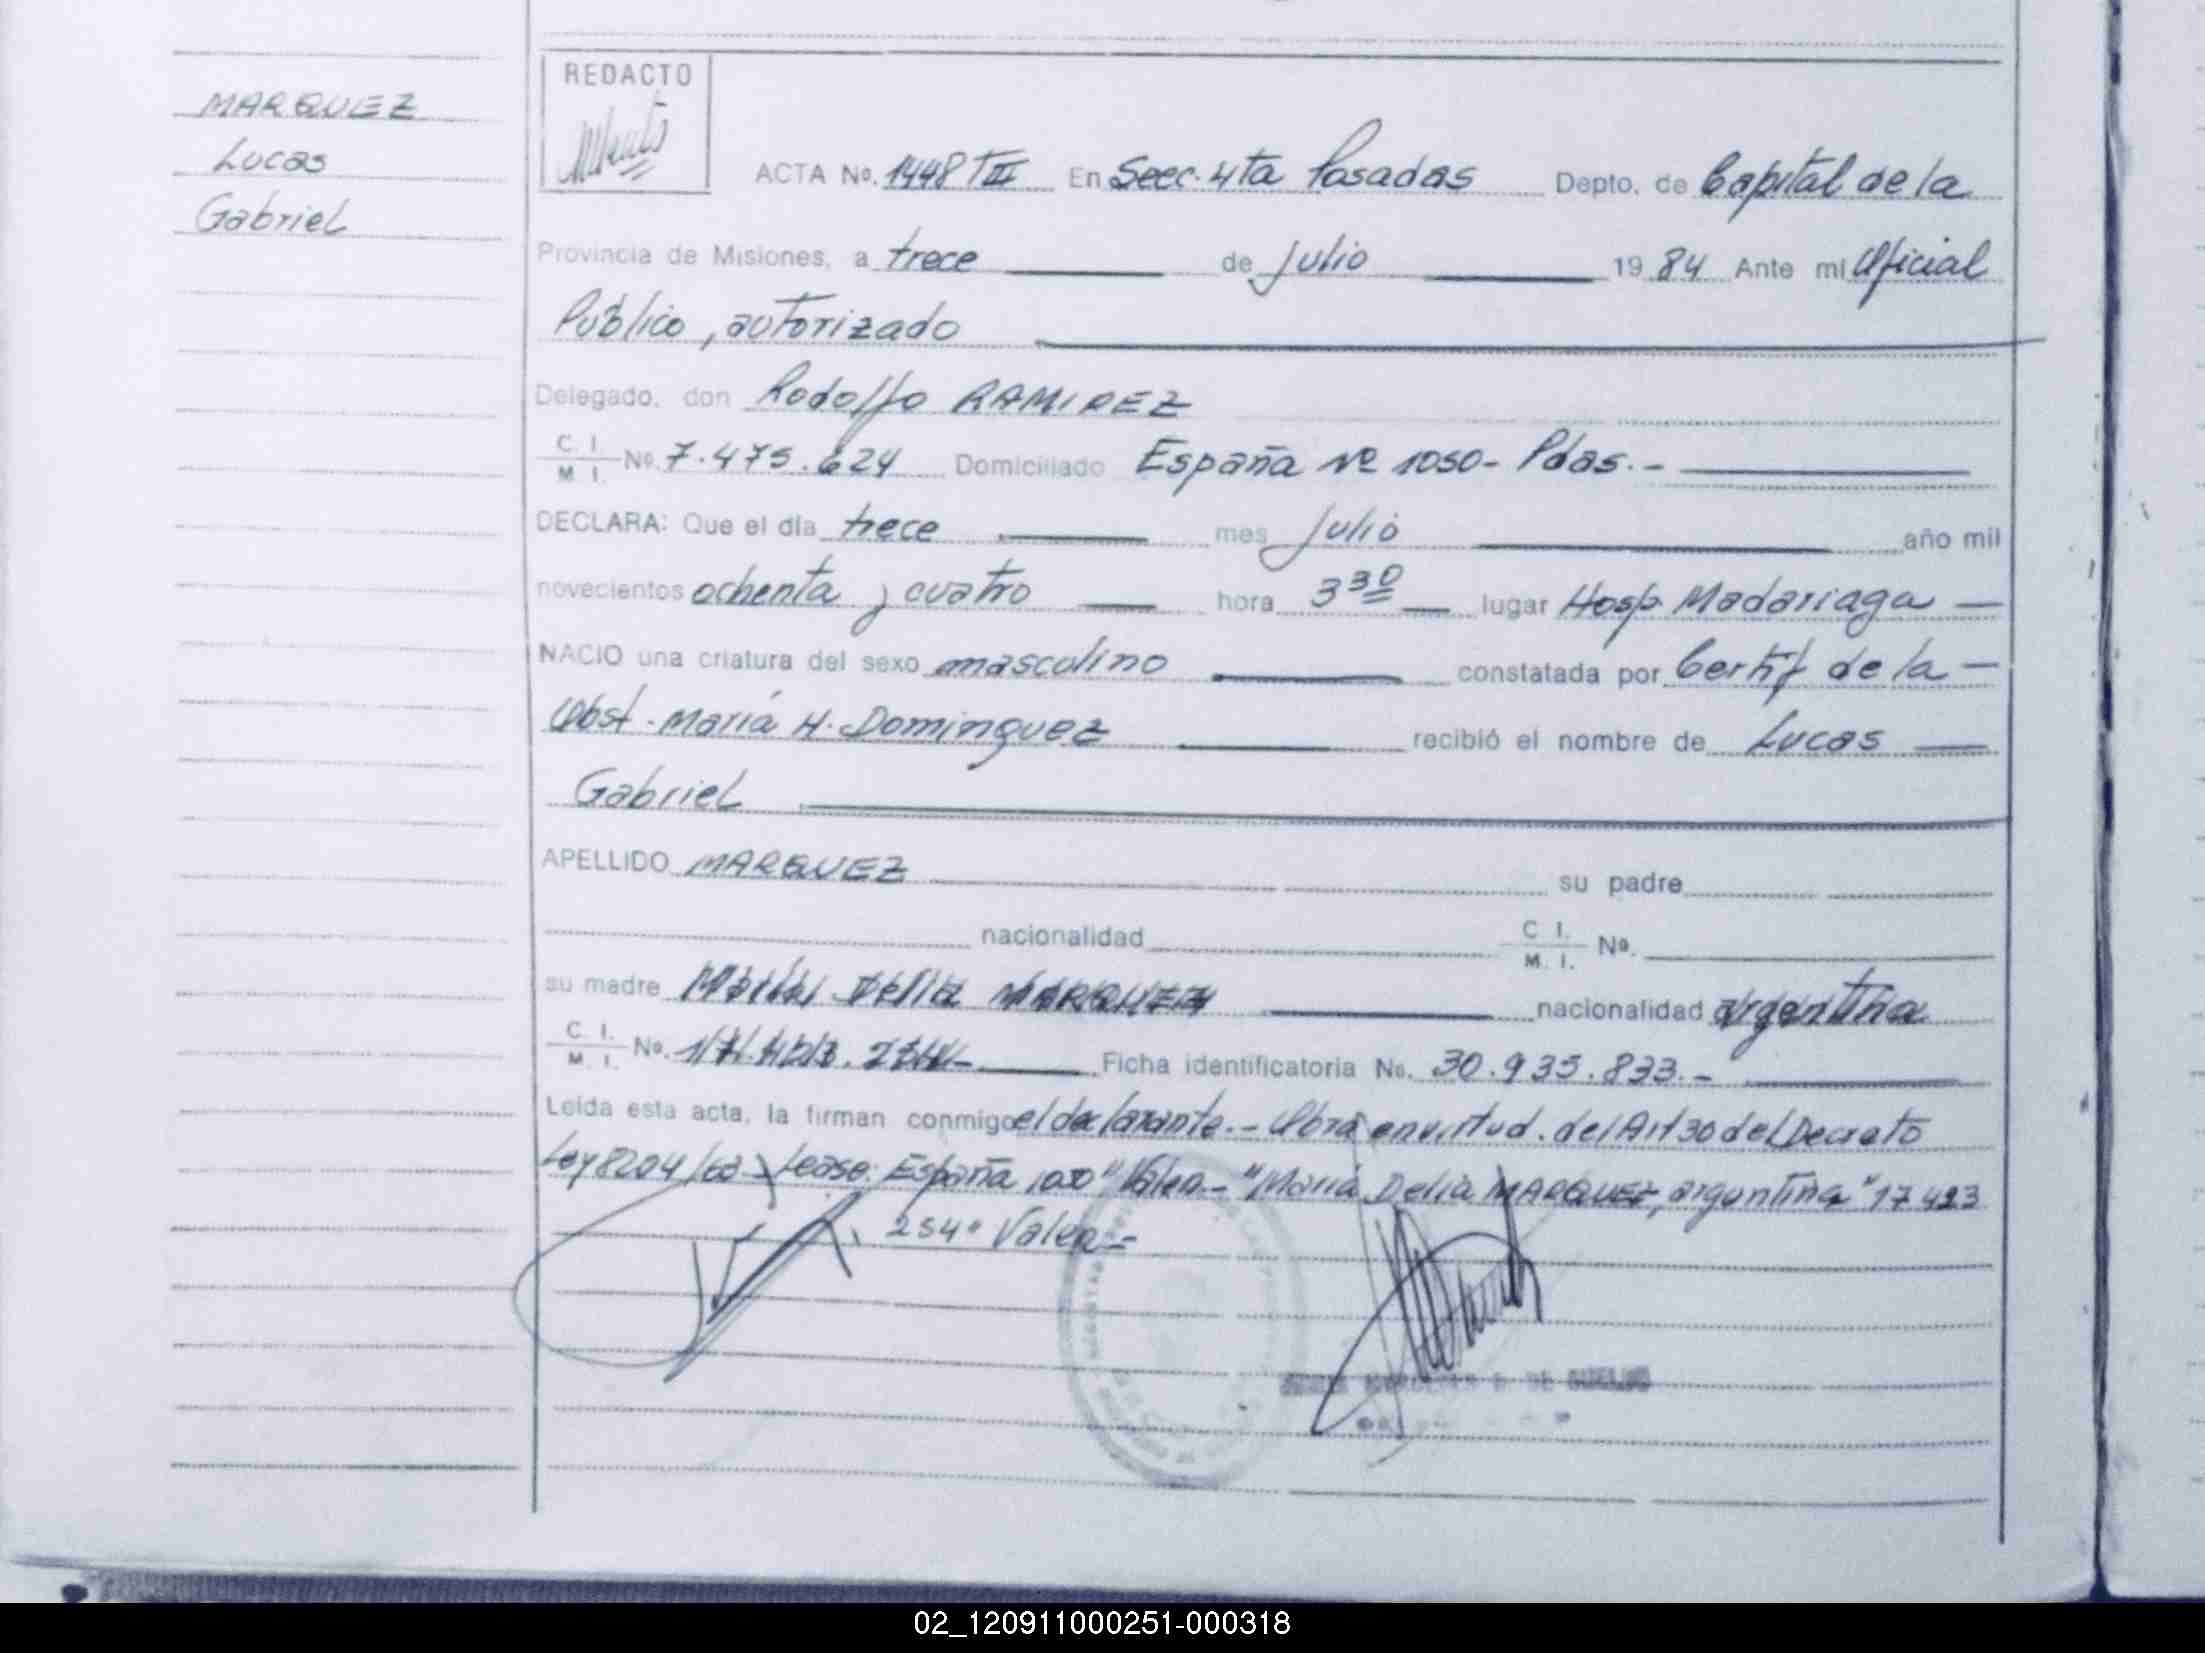 MARQUEZ
Lucas
Gabriel
REDACTO
ACTA No. 1448 TIII En Secc. 4ta Posadas Depto. de Capital de la
Provincia de Misiones, a trece de Julio 19 84 Ante mi Oficial
Público, autorizado
Delegado, don Rodolfo RAMIREZ
C. I.
M. I. No. 7.475.624 Domiciliado España Nº 1050- Pdas.-
DECLARA: Que el día trece mes Julio año mil
novecientos ochenta y cuatro hora 3 30 lugar Hosp Madariaga
NACIO una criatura del sexo masculino constatada por Certif de la
Obst. María H. Dominguez recibió el nombre de Lucas
Gabriel
APELLIDO MARQUEZ su padre
nacionalidad C. I.
M. I. No.
su madre María Delia MARQUEZ nacionalidad argentina
C. I.
M. I. No. Ficha identificatoria No. 30.935.833.-
Leída esta acta, la firman conmigo el declarante.- Obra en virtud. del Art 30 del Decreto
Ley 8204/63 Lease: España "Valea.- "María Delia MARQUEZ, argentina" 17 423
254" Valea-
02_120911000251-000318